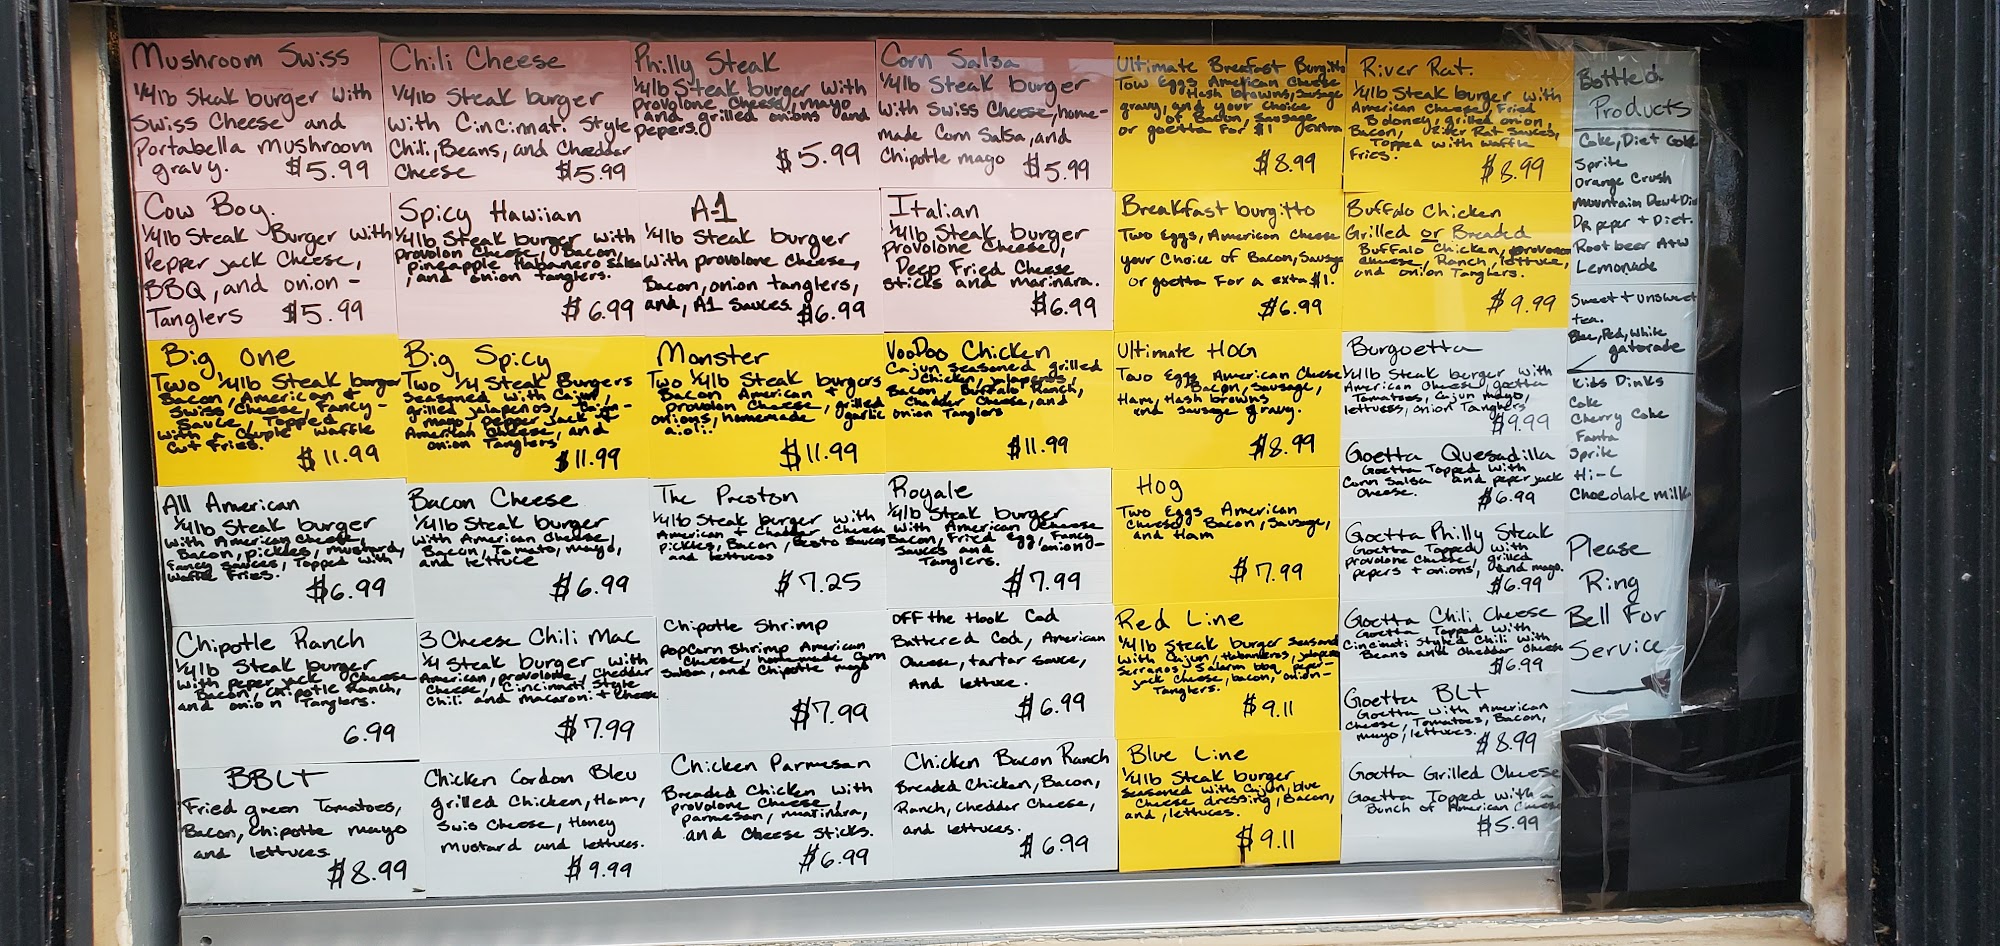 Mushroom Swiss
1/4lb Steak burger with
Swiss Cheese and
Portabella mushroom
gravy. $5.99
Chili Cheese
1/4lb Steak burger
with Cincinnati Style
Chili, Beans, and Cheddar
Cheese $5.99
Philly Steak
1/4lb Steak burger with
provolone cheese, mayo
and grilled onions and
pepers.
$5.99
Corn Salsa
1/4lb Steak burger
with Swiss Cheese, home-
made Corn Salsa, and
Chipotle mayo $5.99
Ultimate Breafast Burgitto
Tow Eggs American Cheese
Hash browns, Sausage
gravy, and your Choice
of Bacon, Sausage
or goetta For $1 extra
$8.99
River Rat.
1/4lb Steak burger with
American Cheese, Fried
Boloney, grilled onion,
Bacon, River Rat Sauces,
Topped with waffle
Fries. $8.99
Cow Boy.
1/4lb Steak Burger with
Pepper jack Cheese,
BBQ, and onion-
Tanglers $5.99
Spicy Hawiian
1/4lb Steak burger with
provolon Cheese, Bacon,
pineapple Habanero Salsa
, and onion tanglers.
$6.99
A-1
1/4lb Steak burger
with provolone Cheese,
Bacon, onion tanglers,
and, A1 Sauces. $6.99
Italian
1/4lb Steak burger
provolone Cheese,
Deep Fried Cheese
sticks and marinara.
$6.99
Breakfast burgitto
Two Eggs, American Cheese
your Choice of Bacon, Sausage
or goetta For a extra $1.
$6.99
Buffalo Chicken
Grilled or Breaded
Buffalo Chicken, provolone
cheese, Ranch, lettuce,
and onion Tanglers.
$9.99
Big one
Two 1/4lb Steak burger
Bacon, American +
Swiss Cheese, Fancy-
Sauce, Topped
with a Couple waffle
Cut Fries. $11.99
Big Spicy
Two 1/4 Steak Burgers
Seasoned with Cajun,
grilled jalapeños,
mayo, pepper jack +
American Cheese, and
onion Tanglers
$11.99
Monster
Two 1/4lb Steak burgers
Bacon American +
provolon Cheese, grilled
onions, homemade garlic
aioli.
$11.99
VooDoo Chicken
Cajun seasoned grilled
Chicken, jalapeños,
Bacon, Buffalo Ranch,
Chadder Cheese, and
onion Tanglers
$11.99
Ultimate HOG
Two Eggs American Cheese
Bacon, Sausage,
Ham, Hash browns
and Sausage gravy.
$8.99
Burgoetta
1/4lb Steak burger with
American Cheese, goetta
Tomatoes, Cajun mayo,
lettuess, onion Tanglers
$9.99
All American
1/4lb Steak burger
with American Cheese,
Bacon, pickles, mustard,
Fancy sauces, Topped with
Waffle Fries.
$6.99
Bacon Cheese
1/4lb Steak burger
with American Cheese,
Bacon, Tomato, mayo,
and lettuce
$6.99
The Preston
1/4lb Steak burger with
American + Chadder Cheese
pickles, Bacon, Sauces
and lettuces
$7.25
Royale
1/4lb Steak burger
with American Cheese
Bacon, Fried Egg, Fancy
Sauces and onion-
Tanglers.
$7.99
Hog
Two Eggs American
Cheese, Bacon, Sausage,
and Ham
$7.99
Goetta Quesadilla
Goetta Topped with
Corn Salsa and peper jack
Cheese.
$6.99
Goetta Philly Steak
Goetta Topped with
provolone Cheese, grilled
pepers + onions, and mayo.
$6.99
Chipotle Ranch
1/4lb Steak burger
with peper jack Cheese
Bacon, Chipotle Ranch,
and onion Tanglers.
6.99
3 Cheese Chili Mac
1/4 Steak burger with
American, provolone, Cheddar
Cheese, Cincinnati Style
Chili and macaroni + Cheese
$7.99
Chipotle Shrimp
popCorn Shrimp American
Cheese, homemade Corn
Salsa, and Chipotle mayo
$7.99
Off the Hook Cod
Battered Cod, American
Cheese, tartar sauce,
And lettuce.
$6.99
Red Line
1/4lb Steak burger Seasoned
with Cajun, Habaneros, jalapeno
Serranos, bbq, peper-
jack Cheese, bacon, onion-
Tanglers.
$9.11
Goetta Chili Cheese
Goetta Topped with
Cincinati Styled Chili with
Beans and Cheddar Cheese
$6.99
Goetta BLT
Goetta with American
Cheese, Tomatoes, Bacon,
mayo, lettuces.
$8.99
BBLT
Fried green Tomatoes,
Bacon, Chipotle mayo
and lettuces
$8.99
Chicken Cordon Bleu
grilled Chicken, Ham,
Swis Cheese, Honey
mustard and lettuces.
$9.99
Chicken Parmesan
Breaded Chicken with
provolone Cheese,
parmesan, marinara,
and Cheese Sticks.
$6.99
Chicken Bacon Ranch
Breaded Chicken, Bacon,
Ranch, Cheddar Cheese,
and lettuces.
$6.99
Blue Line
1/4lb Steak burger
Seasoned with Cajun, blue
Cheese dressing, Bacon,
and, lettuces.
$9.11
Goetta Grilled Cheese
Goetta Topped with a
Bunch of American Cheese
$5.99
Bottled
Products
Coke, Diet Coke
Sprite
Orange Crush
Mountain Dew + Die
DR peper + Diet.
Root beer A+W
Lemonade
Sweet + unsweet
tea.
Blue, Red, White
gatorade
Kids Dinks
Coke
Cherry Coke
Fanta
Sprite
Hi-C
Chocolate milk
Please
Ring
Bell For
Service